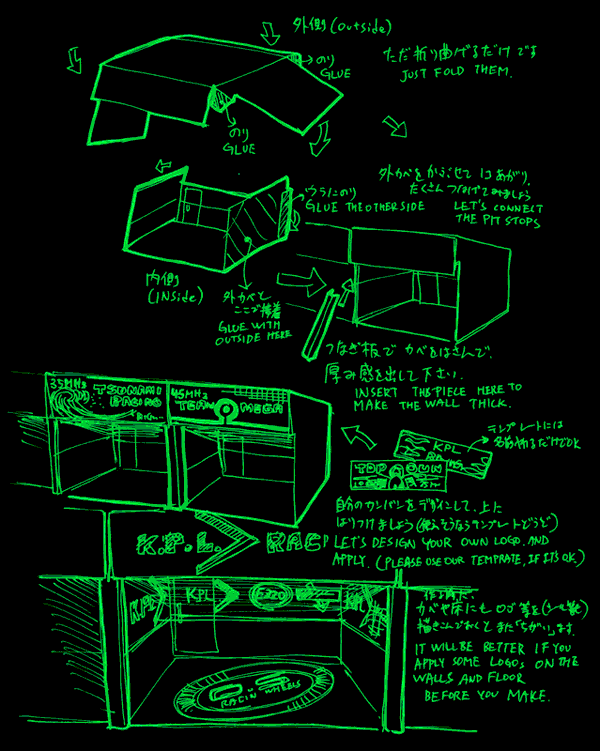 外側(outside)
のり
GLUE
ただ折り曲げるだけです
JUST FOLD THEM.
のり
GLUE
外かべをかぶせて できあがり。
たくさん つなげてみましょう
LET'S CONNECT
THE PIT STOPS
ウラにのり
GLUE THE OTHER SIDE
内側
(INside)
外かべと
ここで接着
GLUE WITH
OUTSIDE HERE
つなぎ板で カベをはさんで、
厚み感を出して下さい。
INSERT THIS PIECE HERE TO
MAKE THE WALL THICK.
35MHz
TSUNAMI
RACING
45MHz
TEAM OMEGA
テンプレートには
名前やるだけでOK
KPL
RACING
自分のカンバンをデザインして、上に
はりつけましょう
LET'S DESIGN YOUR OWN LOGO. AND
APPLY. (PLEASE USE OUR TEMPRATE, IF IT'S OK.)
K.P.L. RACI
KPL
KPL
カベや床にも ロゴ等を
描きこんでおくと また「ちがい」ます。
IT WILL BE BETTER IF YOU
APPLY SOME LOGOS ON THE
WALLS AND FLOOR
BEFORE YOU MAKE.
RACIN WHEELS